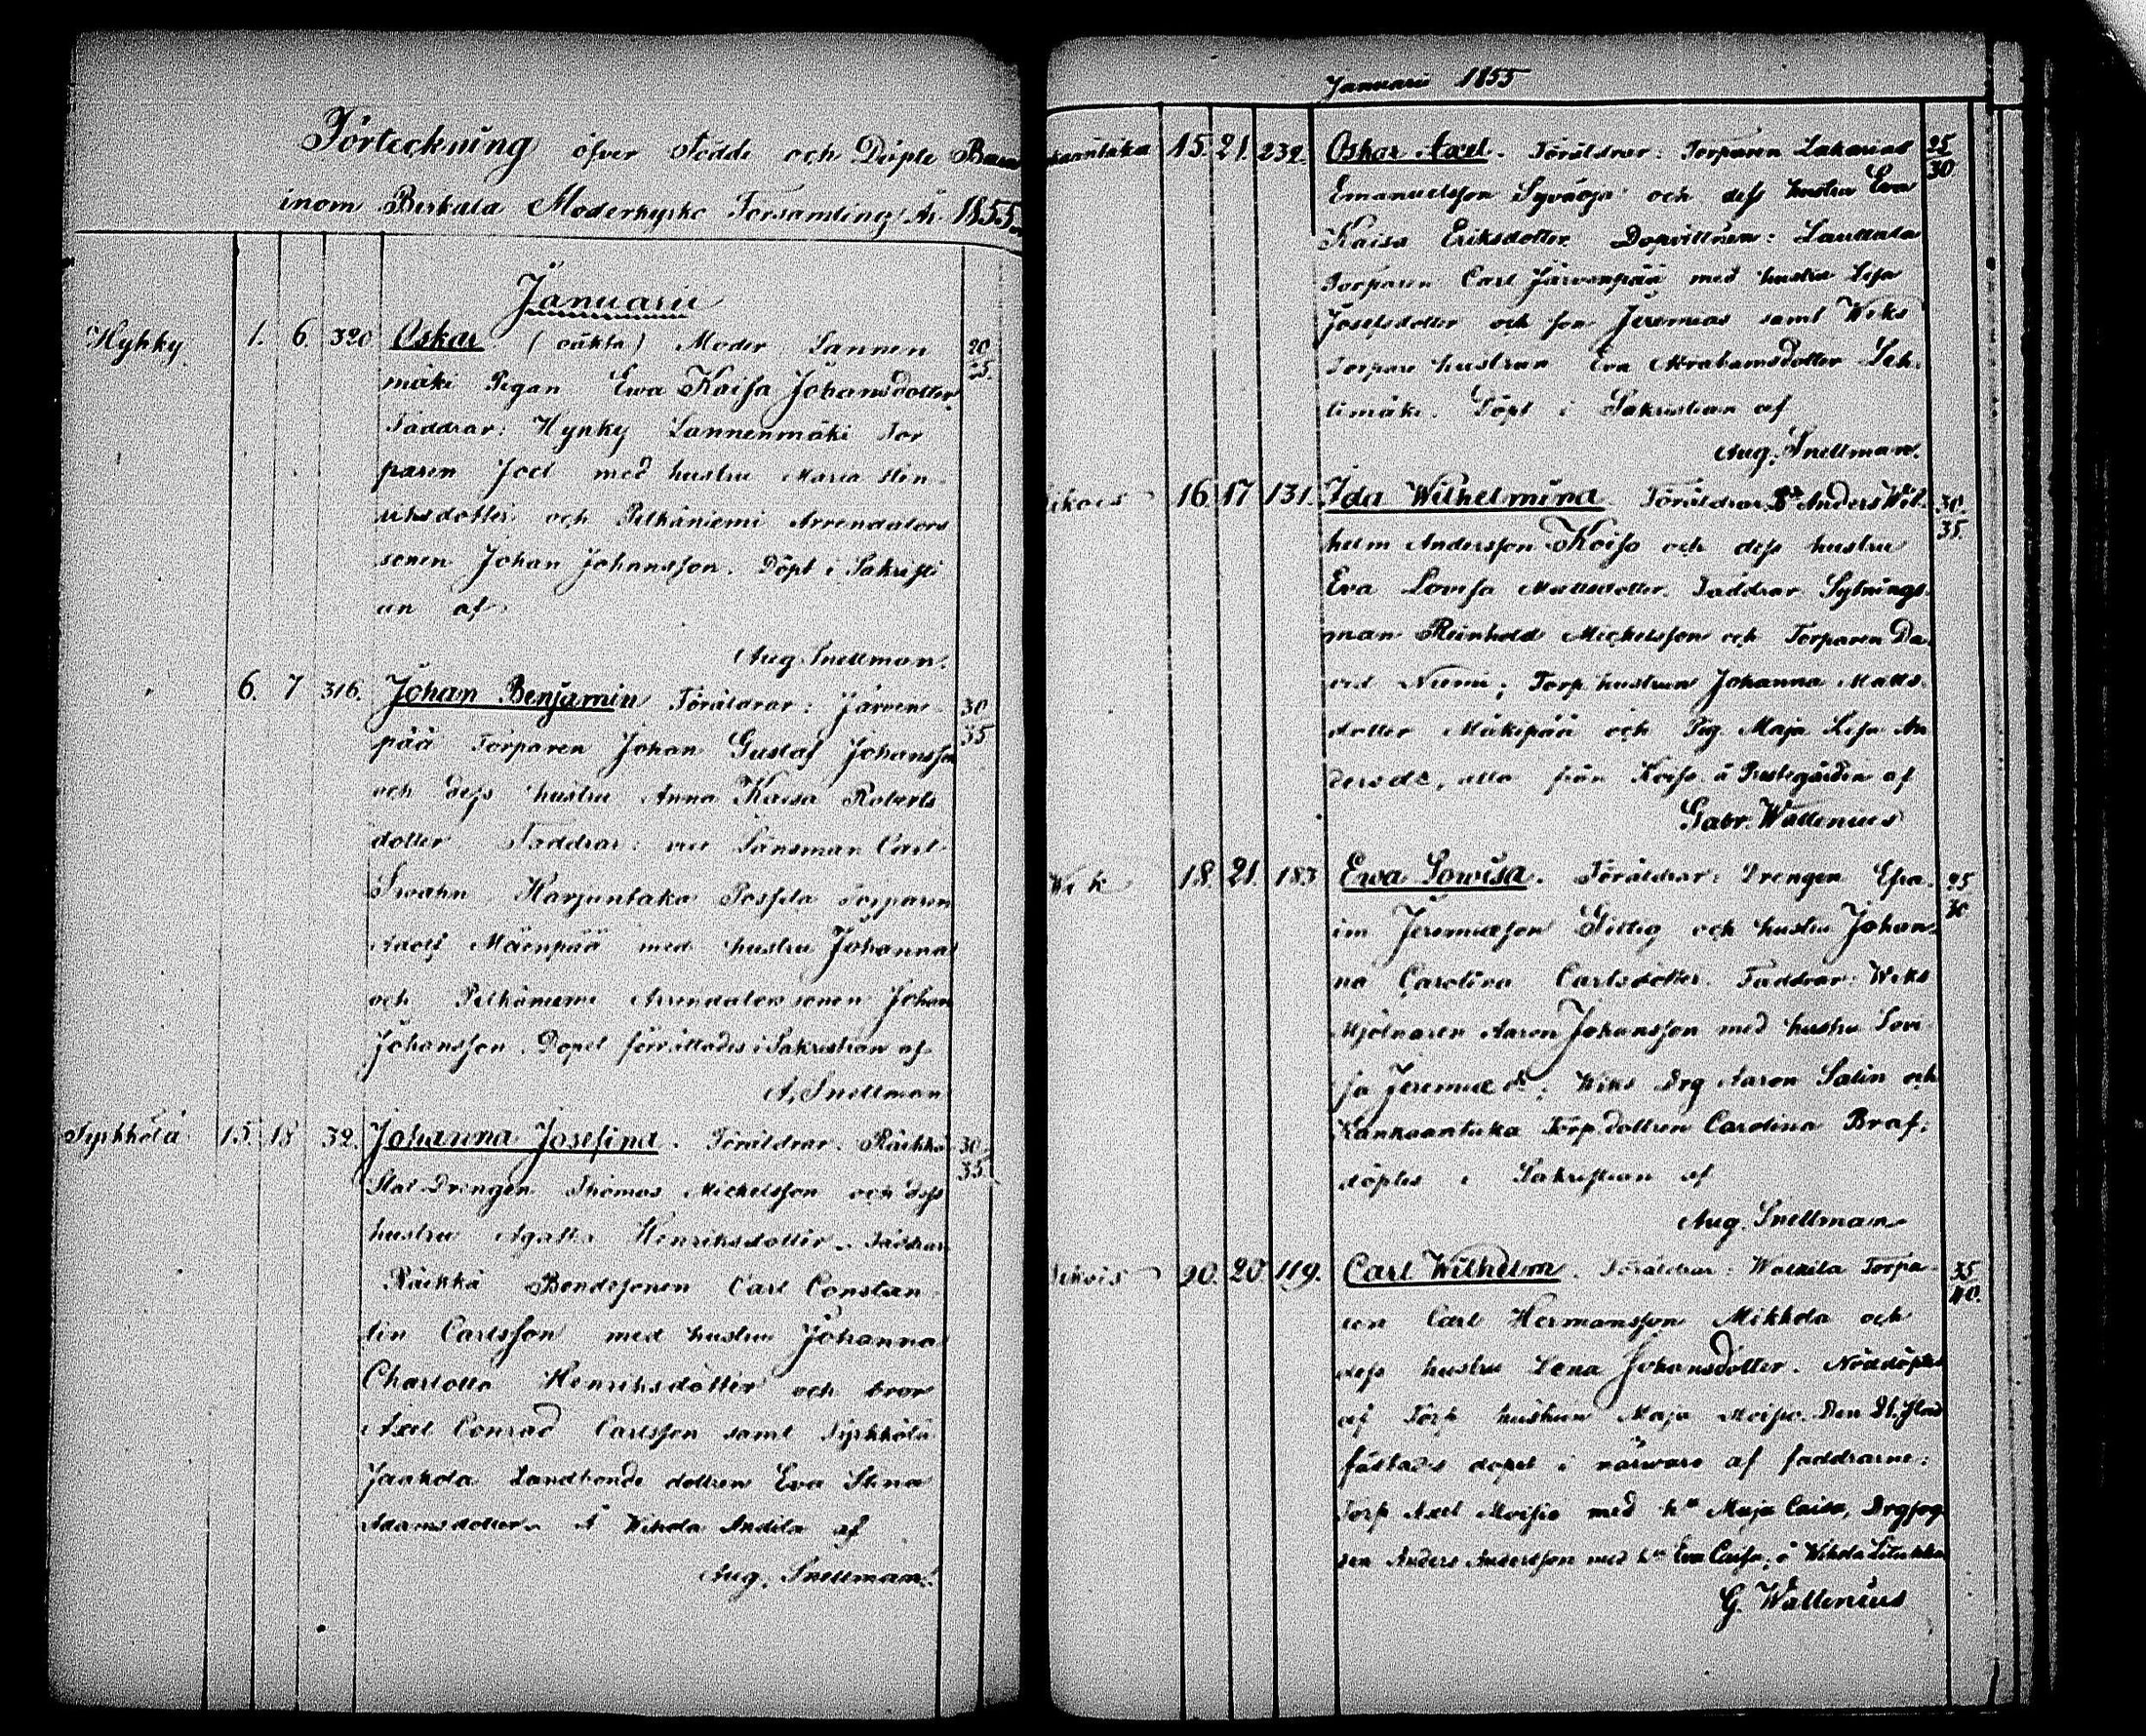 Förteckning öfver Födde och Döpte Barn
inom Birkala Moderkyrko Församling År 1855
Januarii
Hyhky 1. 6 320 Oskar (oäkta) Moder Lannen 20/25.
mäki Pigan Ewa Kaisa Johansdotter
Faddrar: Hyhky Lannenmäki Tor
paren Joel med hustru Maria Hen
riksdotter och Pelkäniemi Arrendators
sonen Johan Johansson. Döpt i Sakristi
an af
Aug Snellman.
" 6. 7 316. Johan Benjamin Föräldrar: Järven 30/35
pää Torparen Johan Gustaf Johansson
och dess hustru Anna Kaisa Roberts
dotter Faddrar: vice Länsman Carl
Swahn, Harjuntaka Possila Torparen
Adolf Mäenpää med hustru Johanna
och Pelkäniemi Arrendators sonen Johan
Johansson. Dopet förrättades i Sakristian af
A. Snellman
Tyrkkölä 15. 18 32. Johanna Josefina. Föräldrar. Räikkä 30/35
Stat Drengen Thomas Michelsson och dess
hustru Agatha Henriksdotter. Faddrar
Räikkä Bondesonen Carl Constan
tin Carlsson med hustru Johanna
Charlotta Henriksdotter och bror
Axel Conrad Carlsson samt Tyrkkölä
Jaakola Landbonde dottren Eva Stina
Adamsdotter. Å Wihola Andila af
Aug. Snellman.
Januarii 1855
kaantaka 15. 21. 232. Oskar Axel. Föräldrar: Torparen Zakarias 25/30
Emanuelsson Syväoja och dess hustru Eva
Kaisa Eriksdotter Dopvittnen: Lauttala
Torparen Carl Järvenpää med hustru Lisa
Josefsdotter och son Jeremias samt Wiks
Torpare hustrun Eva Abrahamsdotter Leh
timäki. Döpt i Sakristian af
Aug. Snellman.
16. 17 131. Ida Wilhelmina. Föräldrar Anders Wil 30/35.
helm Andersson Koiso och dess hustru
Eva Lovisa Mattsdotter. Faddrar Sytnings
man Reinhold Michelsson och Torparen Da
vid Niemi; Torp. hustrun Johanna Matts
dotter Mäkipää och Pig. Maja Lisa An
dersdr, alla från Koiso å Prestegården af
Gabr. Wallenius
Wik 18. 21. 183 Ewa Lowisa. Föräldrar: Drengen Efra 25/30
im Jeremiasson Sillig och hustru Johan
na Carolina Carlsdotter. Faddrar: Wiks
Mjölnaren Aaron Johansson med hustru Lovi
sa Jeremiæ dr; Wiks Drg Aaron Salin och
Kankaantaka Torp. dottren Carolina Braf;
döptes i Sakristian af
Aug. Snellman
20. 20 119. Carl Wilhelm. Föräldrar: Walkila Torpa 35/40.
ren Carl Hermansson Mikkola och
dess hustru Lena Johansdotter. Nöddöptes
af Torp hustrun Maja Moisio. Den 21 stad
fästades dopet i närvaro af faddrarne:
Torp Axel Moisio med hu Maja Caisa,
Anders Andersson med hu Eva Caisa, å Wihola
G. Wallenius